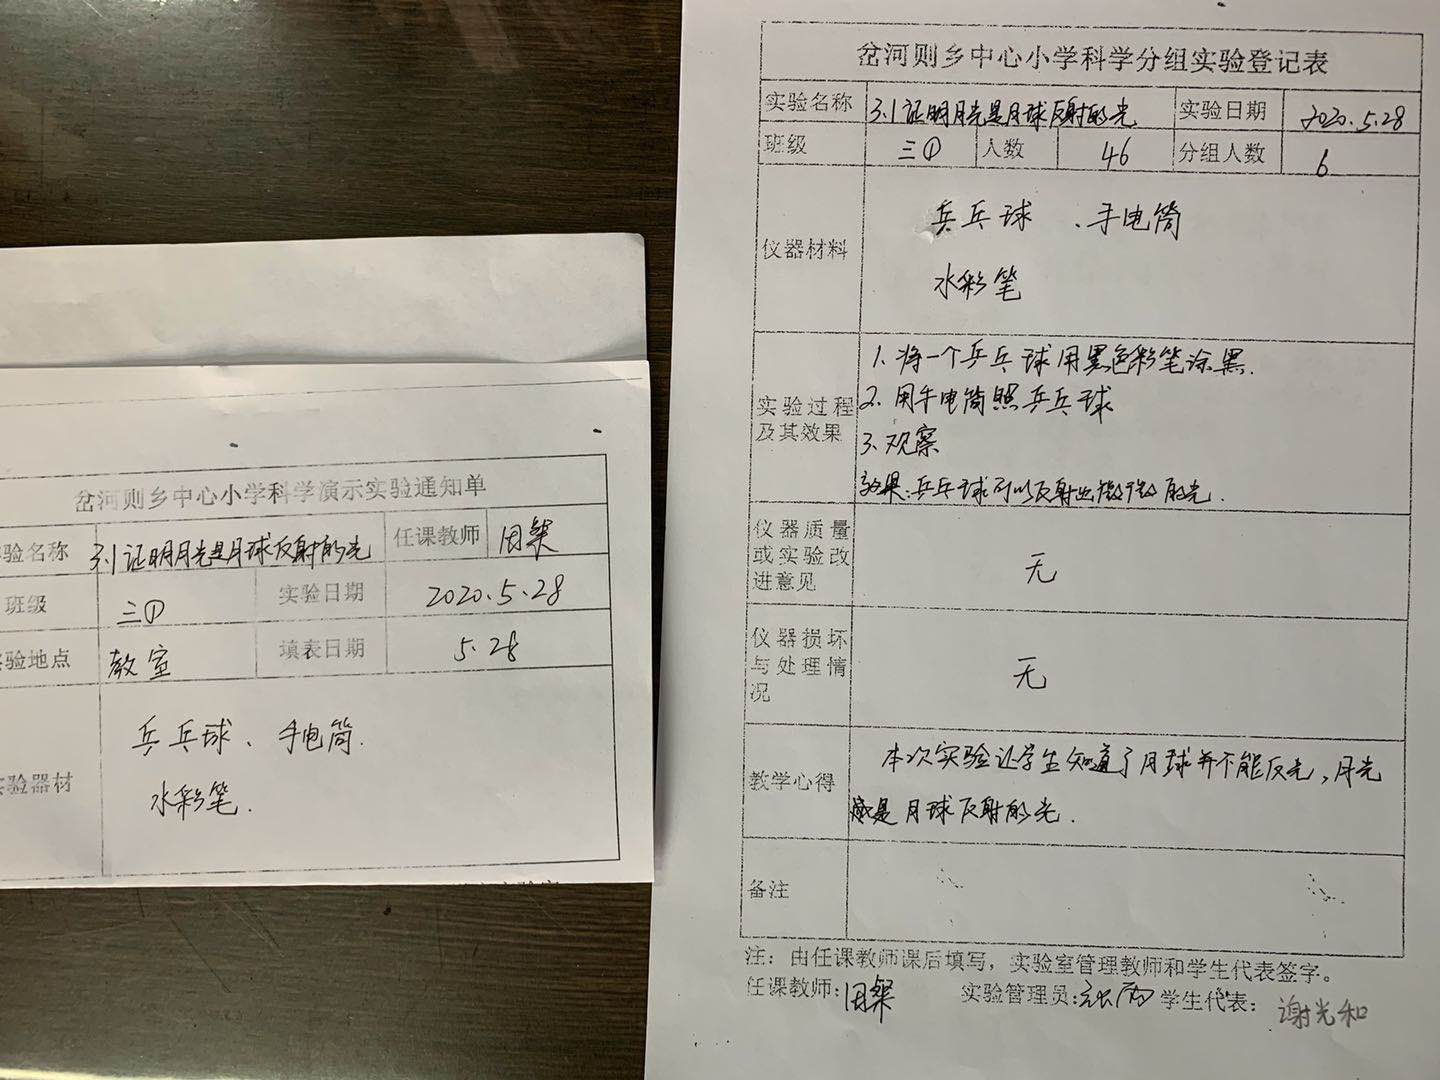 岔河则乡中心小学科学演示实验通知单
验名称 3.1证明月光是月球反射的光 任课教师
班级 三① 实验日期 2020.5.28
验地点 教室 填表日期 5.28
实验器材 乒乓球、手电筒.
水彩笔.
岔河则乡中心小学科学分组实验登记表
实验名称 3.1证明月光是月球反射的光 实验日期 2020.5.28
班级 三① 人数 46 分组人数 6
仪器材料 乒乓球、手电筒
水彩笔
实验过程及其效果
1.将一个乒乓球用黑色彩笔涂黑.
2.用手电筒照乒乓球
3.观察
效果:乒乓球可以反射出微微的光.
仪器质量
或实验改
进意见
无
仪器损坏
与处理情
况
无
教学心得
本次实验让学生知道了月球并不能反光,月光
是月球反射的光.
备注
注:由任课教师课后填写,实验室管理教师和学生代表签字。
任课教师: 实验管理员: 学生代表: 谢光和